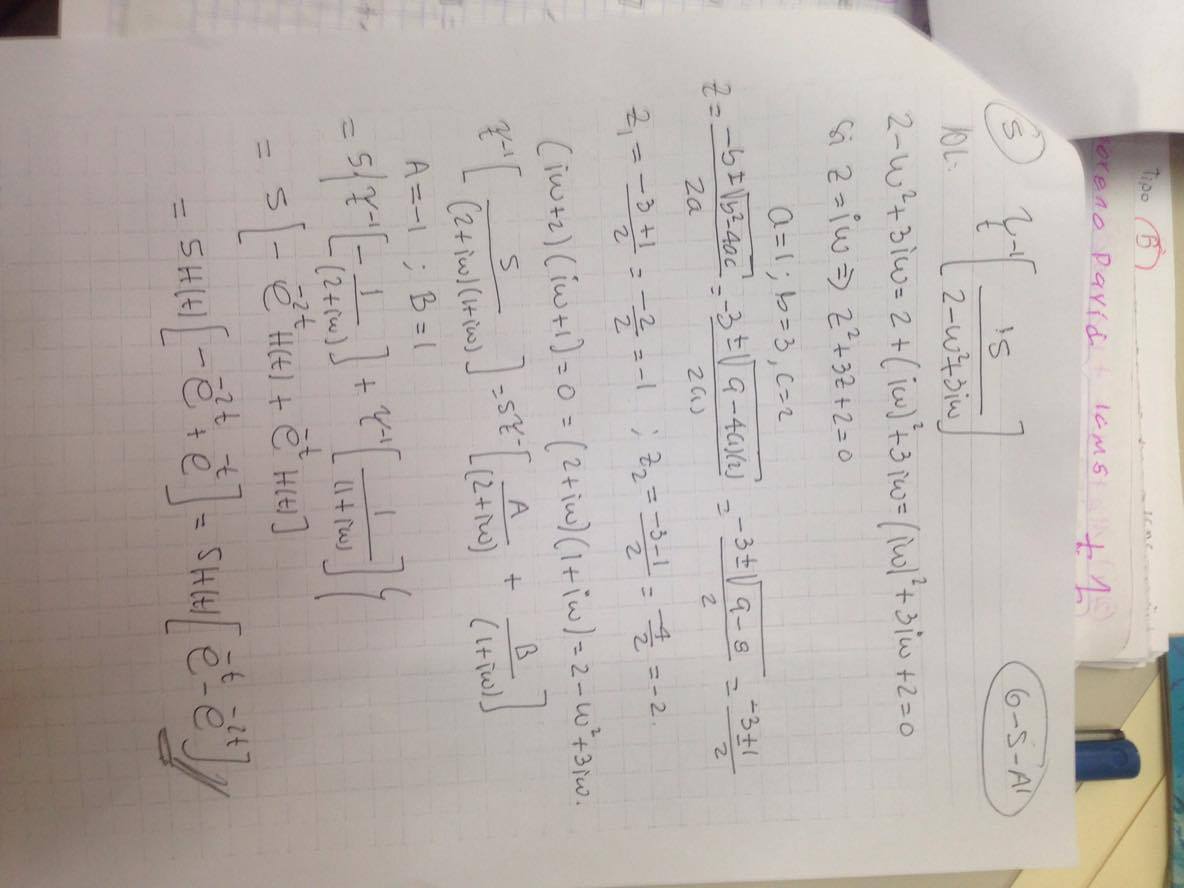 Tipo B
oreno David 1CM5 +1
5 ℱ⁻¹ₜ[ 15 / (2-ω²+3iω) ] 6-5-A1
2-ω²+3iω = 2+(iω)²+3iω = (iω)²+3iω+2=0
Si z=iω ⇒ z²+3z+2=0
a=1; b=3, c=2
z = (-b±√(b²-4ac)) / 2a = (-3±√(9-4(1)(2))) / 2(1) = (-3±√(9-8)) / 2 = (-3±1) / 2
z₁ = (-3+1)/2 = -2/2 = -1 ; z₂ = (-3-1)/2 = -4/2 = -2.
(iω+2)(iω+1)=0 = (2+iω)(1+iω) = 2-ω²+3iω.
ℱ⁻¹[ 5 / ((2+iω)(1+iω)) ] = 5ℱ⁻[ A/(2+iω) + B/(1+iω) ]
A=-1 ; B=1
= 5{ℱ⁻¹[ -1/(2+iω) ] + ℱ⁻¹[ 1/(1+iω) ]}
= 5[ -e⁻²ᵗ H(t) + e⁻ᵗ H(t) ]
= 5H(t)[ -e⁻²ᵗ + e⁻ᵗ ] = 5H(t)[ e⁻ᵗ - e⁻²ᵗ ]//